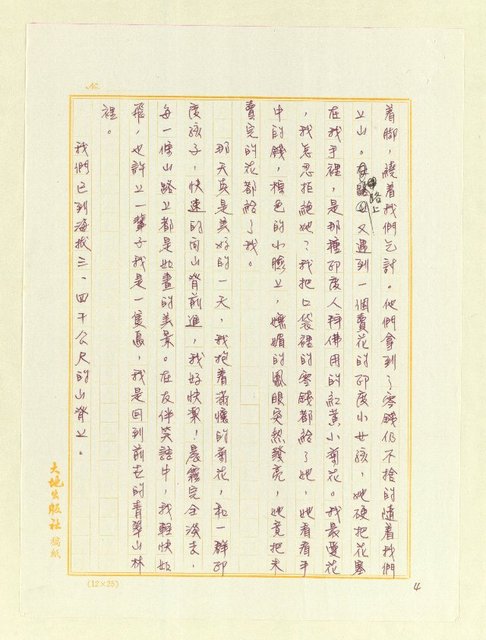 No.
着脚，繞着我們乞討。他們拿到了零錢仍不捨的隨着我們
上山。在路上又遇到一個賣花的印度小女孩，她硬把花塞
在我手裡，是那種印度人拜佛用的紅黃小菊花。我最愛花
，我怎忍拒絕她？我把口袋裡的零錢都給了她，她看看手
中的錢，棕色的小臉上，嫵媚的鳳眼突然發亮，她竟把未
賣完的花都給了我。
那天真是美好的一天，我抱着滿懷的菊花，和一群印
度孩子，快速的向山脊前進，我好快潔，晨霧完全淡去，
每一條山路上都是如畫的美景。在友伴笑語中，我輕快如
飛，也許上一輩子我是一隻鳥，我是回到前世的青翠山林
裡。
我們已到海拔三、四千公尺的山脊上。
大地出版社稿紙
(12×25)
4